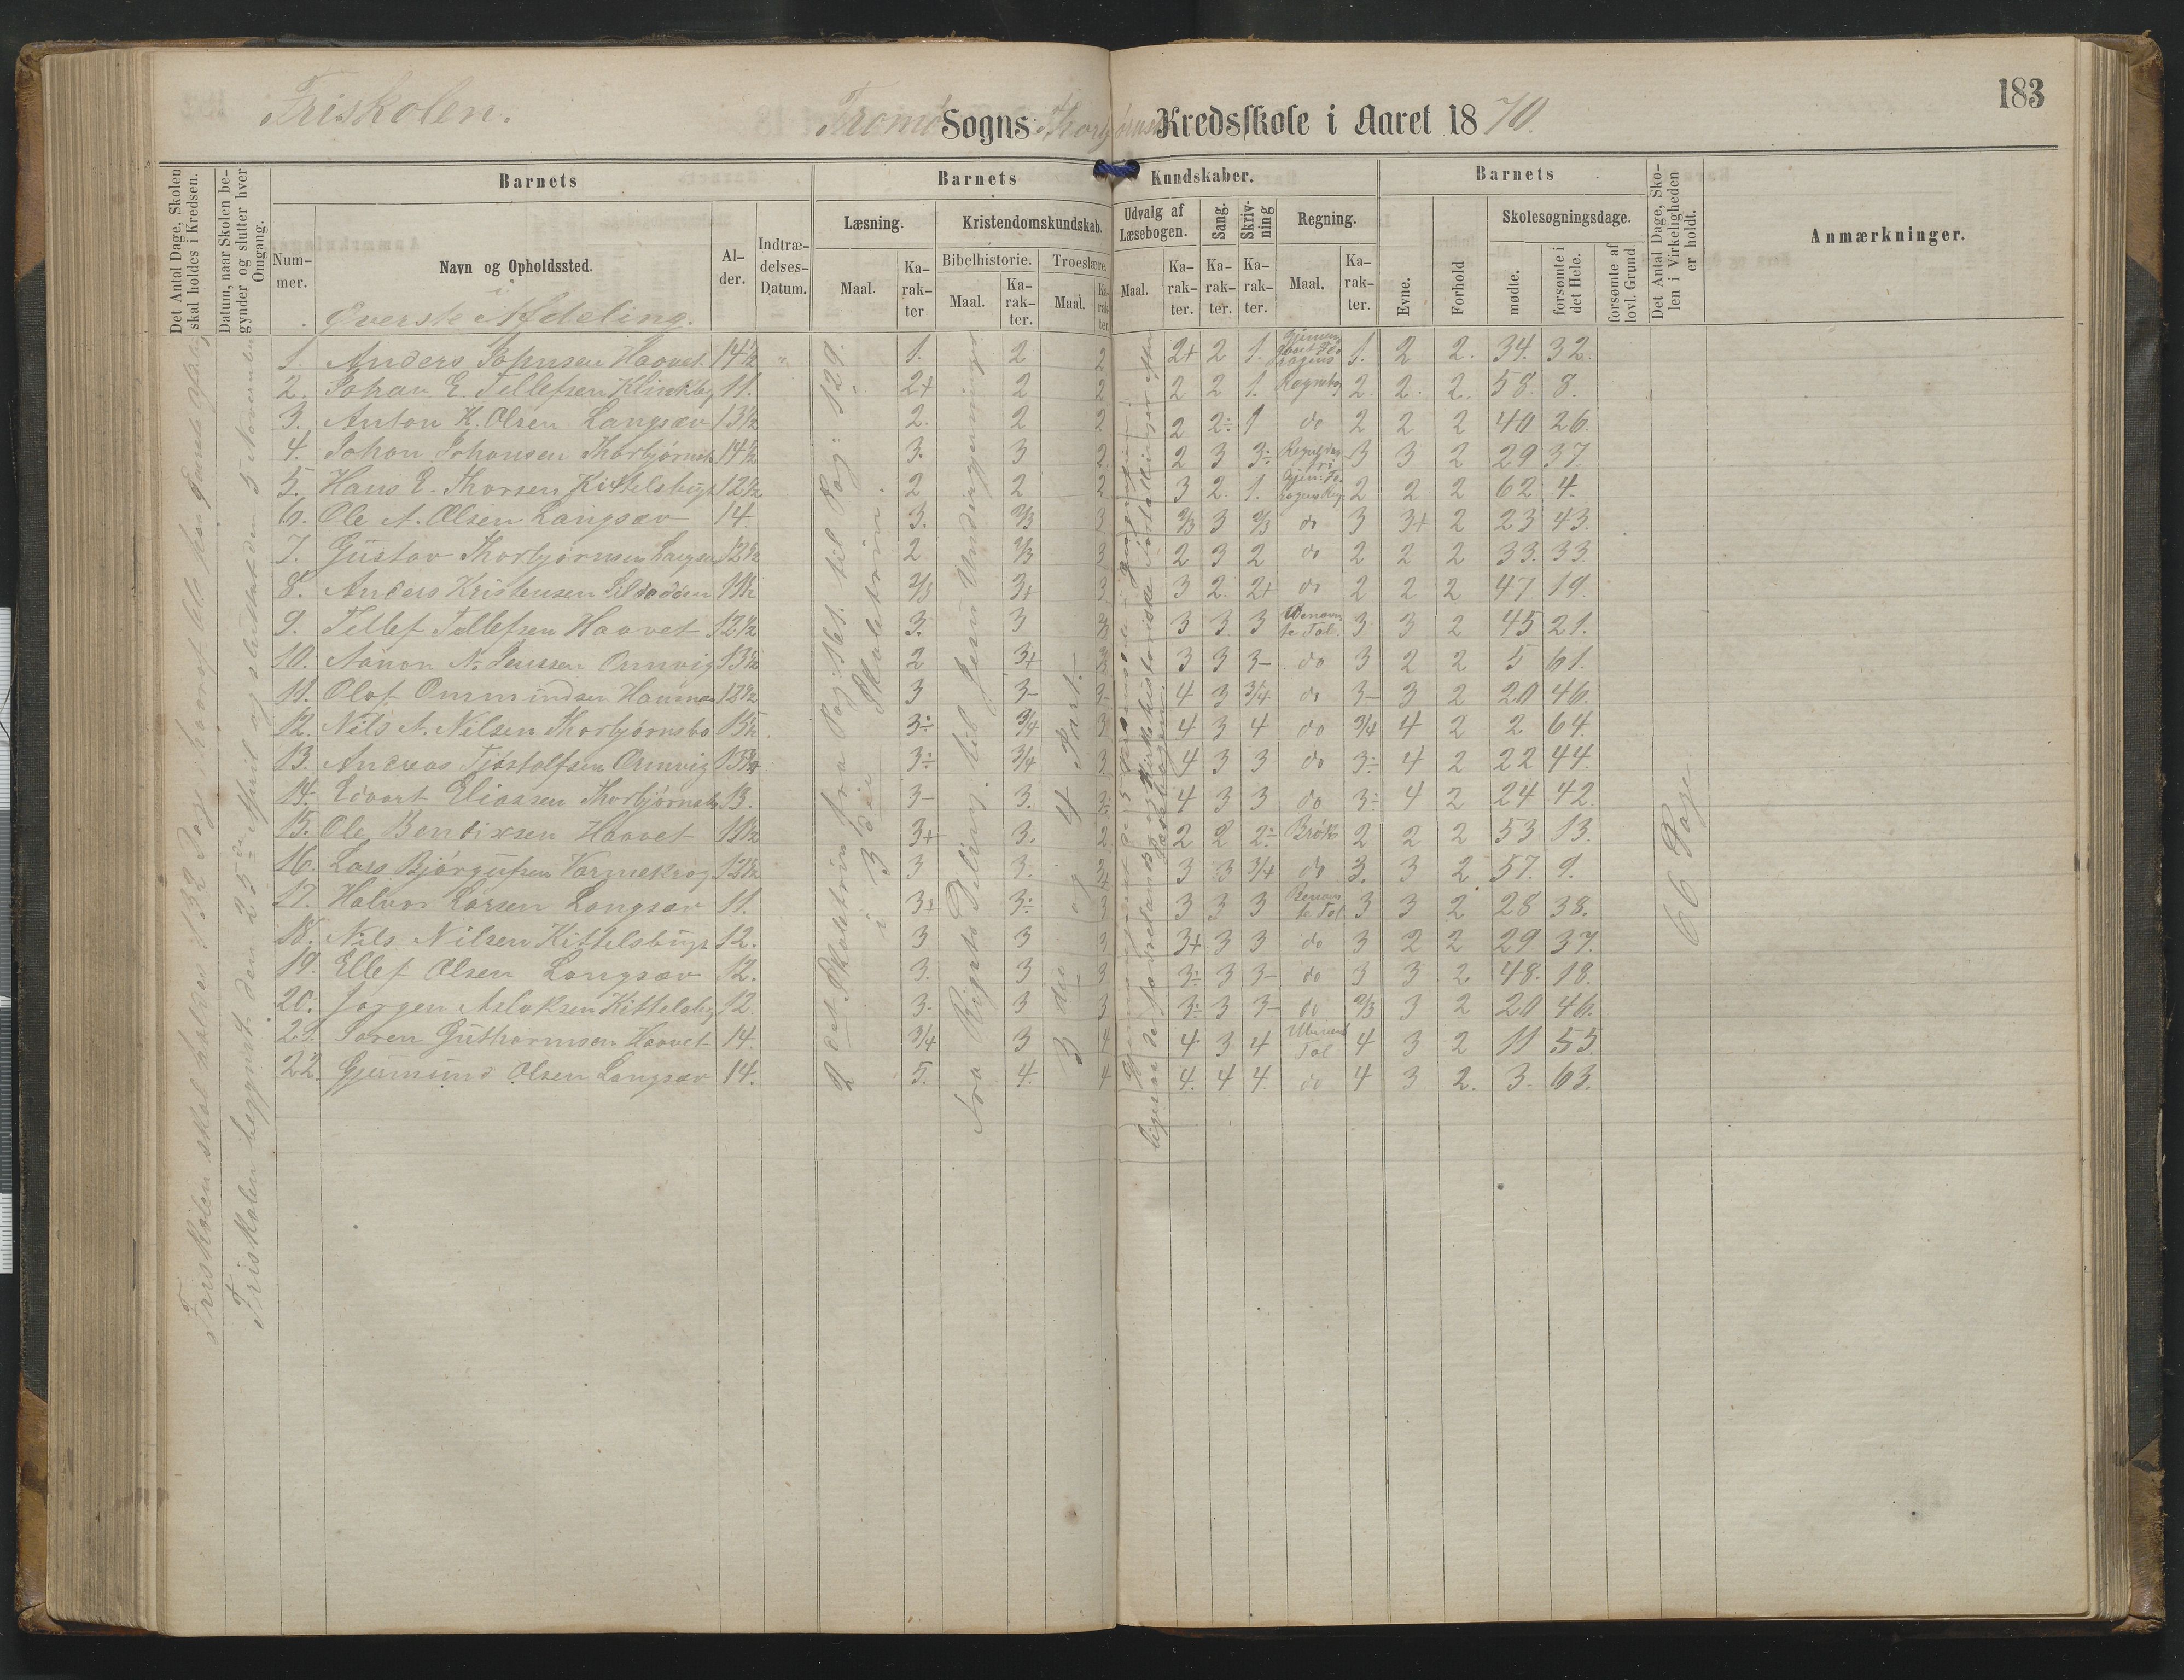 183
Friskolen.
Tromø Sogns Thorbjørnsb. Kredsskole i Aaret 1870.
Det Antal Dage, Skolen skal holdes i Kredsen.
Datum, naar Skolen begynder og slutter hver Omgang.
Barnets
Num-mer.
Navn og Opholdssted.
Al-der.
Indtræ-delses-Datum.
Barnets Kundskaber.
Læsning.
Maal.
Ka-rak-ter
Kristendomskundskab.
Bibelhistorie.
Maal.
Ka-rak-ter.
Troeslære.
Maal.
Ka-rak-ter
Udvalg af Læsebogen.
Maal.
Ka-rak-ter.
Sang.
Ka-rak-ter.
Skriv-ning
Ka-rak-ter.
Regning.
Maal.
Ka-rak-ter.
Barnets
Evne.
Forhold
Skolesøgningsdage.
mødte.
forsømte i det Hele.
forsømte af lovl. Grund.
Det Antal Dage, Sko-len i Virkeligheden er holdt.
Anmærkninger.
Øverste Afdeling.
1. Anders Johnsen Haavet 14½ " 1. 2 2 2+ 2 1. 1. 2 2. 34. 32.
2. Johan E. Tellefsen 11. 2+ 2 2 2 2 1. Regnebog 2. 2. 2. 58. 8.
3. Anton K. Olsen Langsæv 13½ 2. 2 2 2 2÷ 1 do 2 2 2 40 26.
4. Johan Johansen Thorbjørnsb 14½ 3. 3 2 2 3 3÷ 3 3 2 29 37.
5. Hans E. Thorsen Kittelsbugt 12½ 2 2 2 3 2. 1. 2 2 2 62 4.
6. Ole A. Olsen Langsæv 14. 3. 2/3 3 2/3 3 2/3 do 3 3+ 2 23 43.
7. Gustav Thorbjørnsen Langsæv 12½ 2 2/3 3 2 3 2 do 2 2 2 33. 33.
8. Anders Kristensen Sildodden 11½ 2/3 3+ 3 3 2. 2+ do 2 2 2 47. 19.
9. Tellef Tellefsen Haavet 12½ 3. 3 2/3 3 3 3 Benævnte Tal. 3 3 2 45 21.
10. Aanon N. Jenssen Ormvig 13½ 2 3+ 2/3 3 3 3- do 3 2 2 5 61.
11. Olaf Ommundsen 12½ 3 3- 3- 4 3 3/4 do 3- 3 2 20 46.
12. Nils A. Nilsen Thorbjørnsbo 13½ 3÷ 3/4 3 4 3 4 do 3/4 4 2 2 64.
13. Andreas Tjøstolfsen Ormvig 3÷ 3/4 3 4 3 3 do 3÷ 4 2 22 44.
14. Edvart Eliassen Thorbjørnsb 13. 3- 3. 3÷ 4 3 3 do 3÷ 4 2 24 42.
15. Ole Bendixsen Haavet 11½ 3+ 3. 2 2 2 2÷ Brøk 2 2 2 53 13.
16. Lars Bjørgufsen Varmekrog 12½ 3 3. 3+ 3 3 3/4 do 3. 3 2 57. 9.
17. Halvor Larsen Langsæv 11. 3+ 3÷ 3 3 3 3 Benævnte Tal 3 3 2 28 38.
18. Nils Nilsen Kittelsbugt 12. 3 3 3 3+ 3 3 do 3 2 2 29 37.
19. Ellef Olsen Langsæv 12. 3. 3 3 3÷ 3 3- do 3 3 2 48. 18.
20. Jørgen Aslaksen Kittelsbug 12. 3. 3 3 3÷ 3 3- do 2/3 3 2 20 46.
21. Søren Guthormsen Haavet 14. 3/4 3 4 4 3 4 Ubenævnt Tal 4 3 2 11 55.
22. Gjermund Olsen Langsæv 14. 5. 4. 4 4. 4 4. do 4 3 2. 3. 63.
Friskolen skal holdes i 132 Dage, hvoraf
Friskolen begyndt den 25de April og sluttet den 5 November
2det Skoletrin fra Pag: 161. til Pag: 329.
i 3die Skoletrin.
fra Rigets Deling til Jesu Undergjerninger
3die og 4 Part.
Læsebogen.
66 Dage